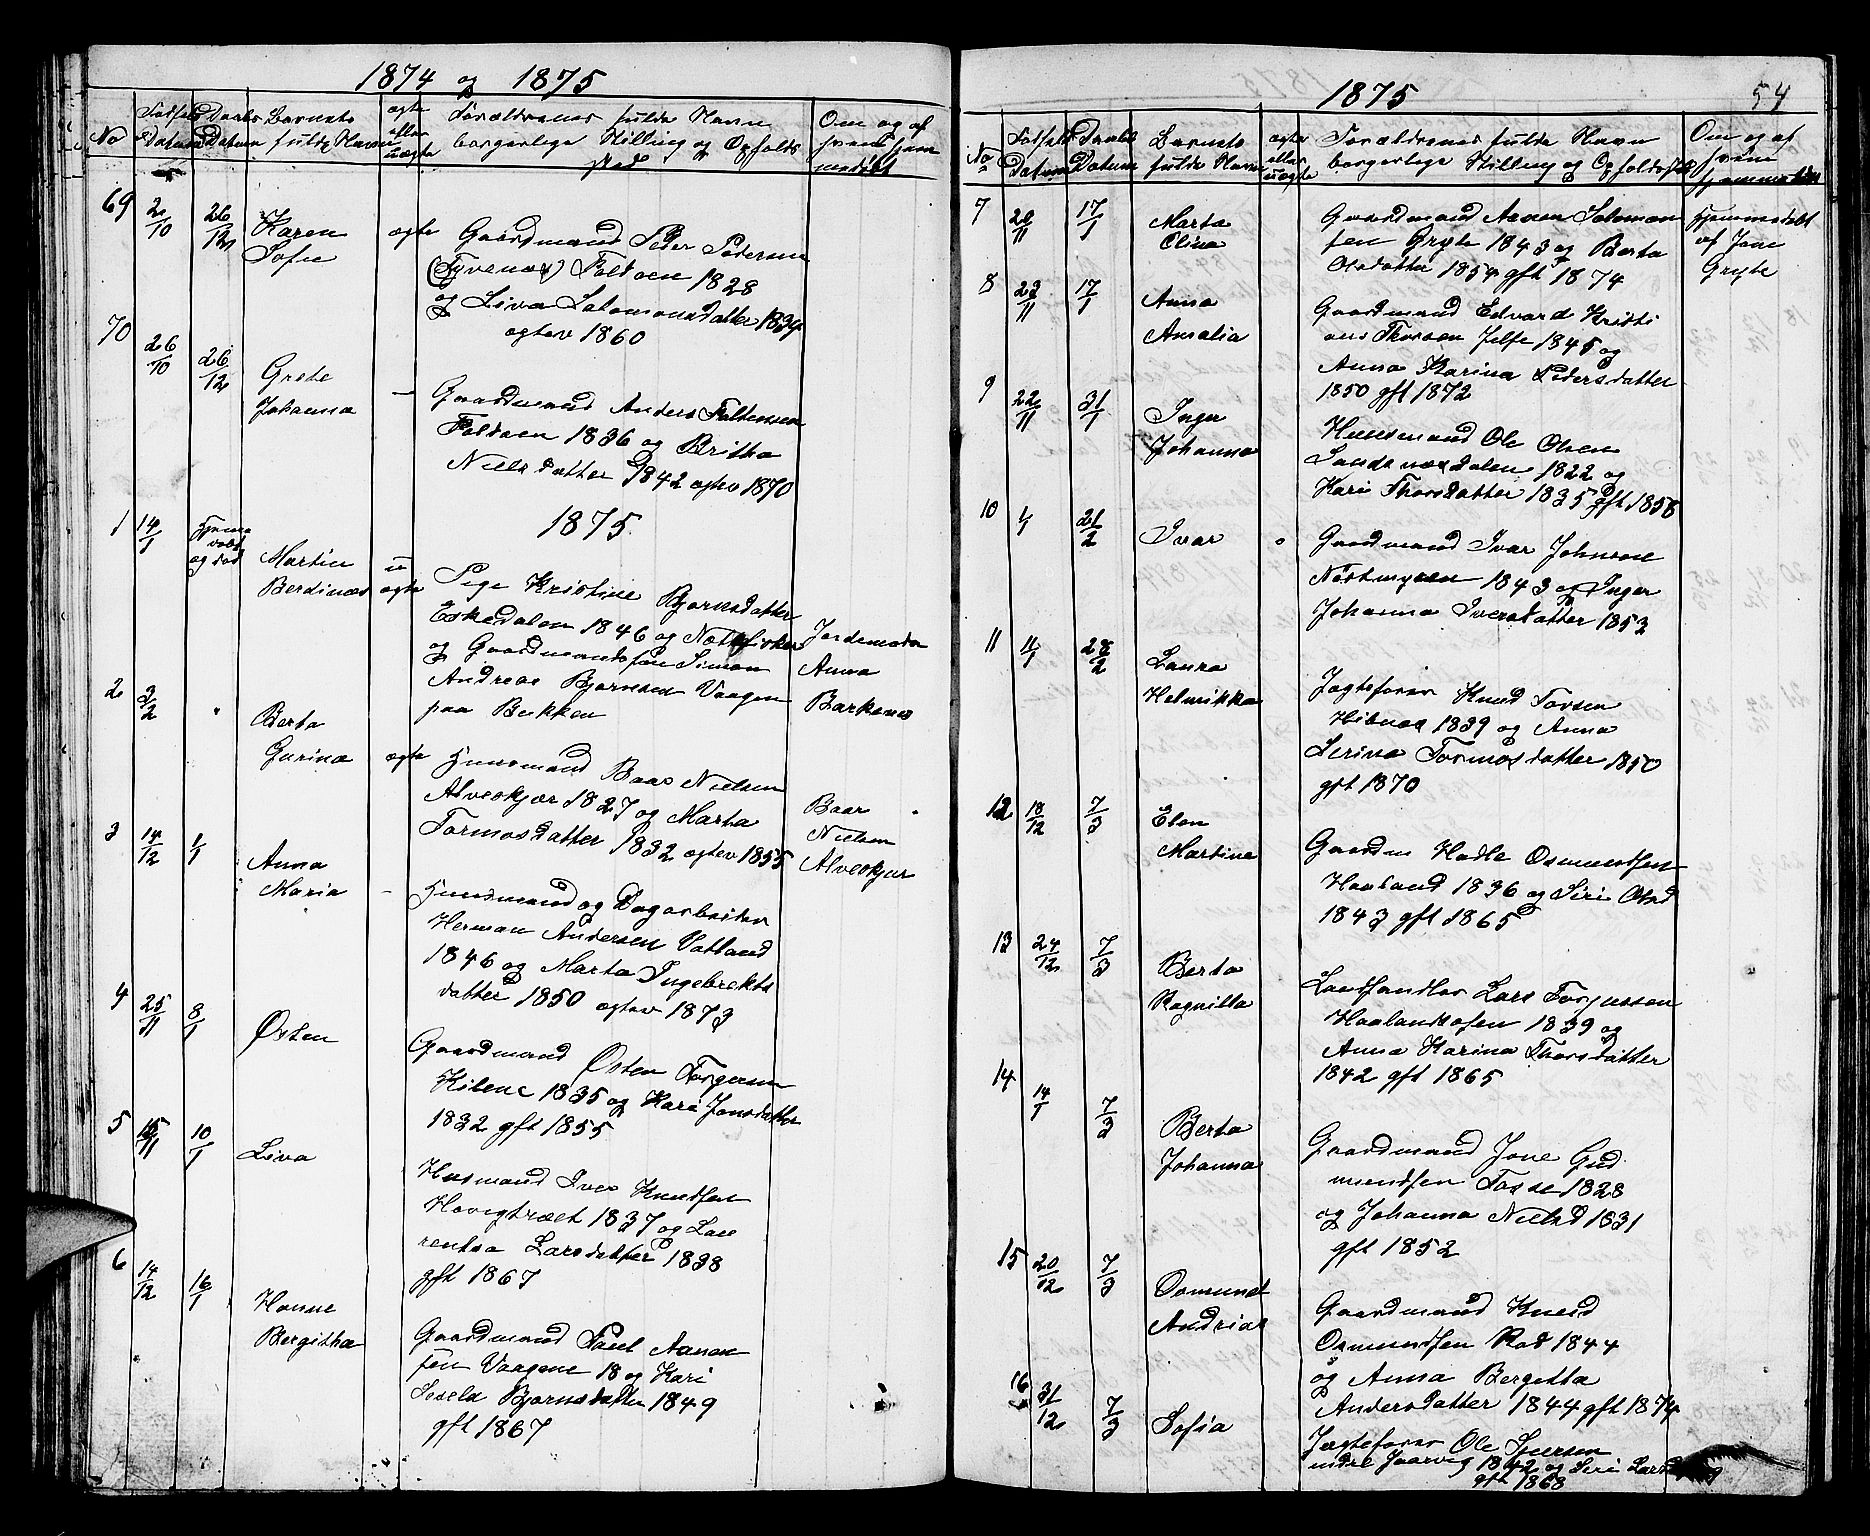 1874 og 1875
No
Fødsels Datum
Daabs Datum
Barnets fulde Navn
ægte eller uægte
Forældrenes fulde Navn
borgerlige Stilling og Opholds
sted
Om og af
hvem hjem
medøbt
69 2/10 26/12 Karen Sofie ægte
Gaardmand Peder Pedersen
(Tyvenæs) Foldøen 1828
og Liva Salomonsdatter 1834
ægtev 1860
70 26/10 26/12 Grete Johanna —
Gaardmand Anders Faltensen
Foldøen 1836 og Britha
Nielsdatter 1842 ægtev 1870
1875
1 14/1 Hjemme
og død
Martin Berdinæs uægte
Pige Kristine Bjørnsdatter
Eskedalen 1846 og
og Gaardmandssøn Simon
Andreas Bjørnsen Vaagen
paa Bekken
Jordemoder
Anna
Barkenes
2 3/2 " Berta Gurina ægte
Huusmand Baar Nielsen
Alveskjær 1827 og Marta
Tormosdatter 1832 ægtev 1855
Baar
Nielsen
Alveskjær
3 14/12 1/1 Anna Maria —
Huusmand og Dagarbeider
Herman Andersen Vatland
1846 og Marta Ingebrekts
datter 1850 ægtev 1873
4 25/11 8/1 Østen
Gaardmand Østen Torgersen
Kilene 1835 og Kari Jonsdatter
1832 gft 1855
5 15/11 10/1 Liva
Husmand Iver Knudsen
Hovigtræet 1837 og Lau
rentsa Larsdatter 1838
gft 1867
6 14/12 16/1 Hanne Bergitha
Gaardmand Poul Aanen
sen Vaagene 18 og Kari
Sesela Bjørnsdatter 1849
gft 1867
1875
54
No
Fødsels Datum
Daabs Datum
Barnets fulde Navn
ægte eller uægte
Forældrenes fulde Navn
borgerlige Stilling og Opholdsste
Om og af
hvem
hjemmedøbt
7 20/11 17/1 Marta Olina
Gaardmand Aanen Salomon
sen Gryte 1843 og Berta
Olsdatter 1854 gft 1874
Hjemmedøbt
af Jone
Gryte
8 23/11 17/1 Anna Amalia
Gaardmand Edvard Kristi
ans Thorsen Jelse 1845 og
Anna Karina Pedersdatter
1850 gft 1872
9 22/11 31/1 Inger Johanna
Huusmand Ole Olsen
Sandsnæsdalen 1822 og
Kari Thorsdatter 1835 gft 1858
10 1/1 21/2 Ivar "
Gaardmand Ivar Johnsen
Nøstmyren 1843 og Inger
Johanna Iversdatter 1853
11 11/1 28/2 Laura Helmikka
Jagteforer Knud Torsen
Hibnæs 1839 og Anna
Serina Tormosdatter 1850
gft 1870
12 18/12 7/3 Elen Martine
Gaardm Hadle Osmundsen
Haaland 1836 og Siri Olsd
1843 gft 1865
13 24/12 7/3 Berta Ragnilla
Landhandler Lars Torjussen
Haalandsosen 1839 og
Anna Karina Thorsdatter
1842 gft 1865
14 14/1 7/3 Berta Johanna
Gaardmand Jone Gud
mundsen Tosse 1828
og Johanna Nielsd 1831
gft 1852
15 20/12 7/3 Osmund Andrias
Gaardmand Knud
Osmundsen Rød 1844
og Anna Bergetta
Andersdatter 1844 gft 1874
16 31/12 7/3 Sofia
Jagteforer Ole Sjursen
indre Jaarvig 1842 og Siri Lars
gft 1868